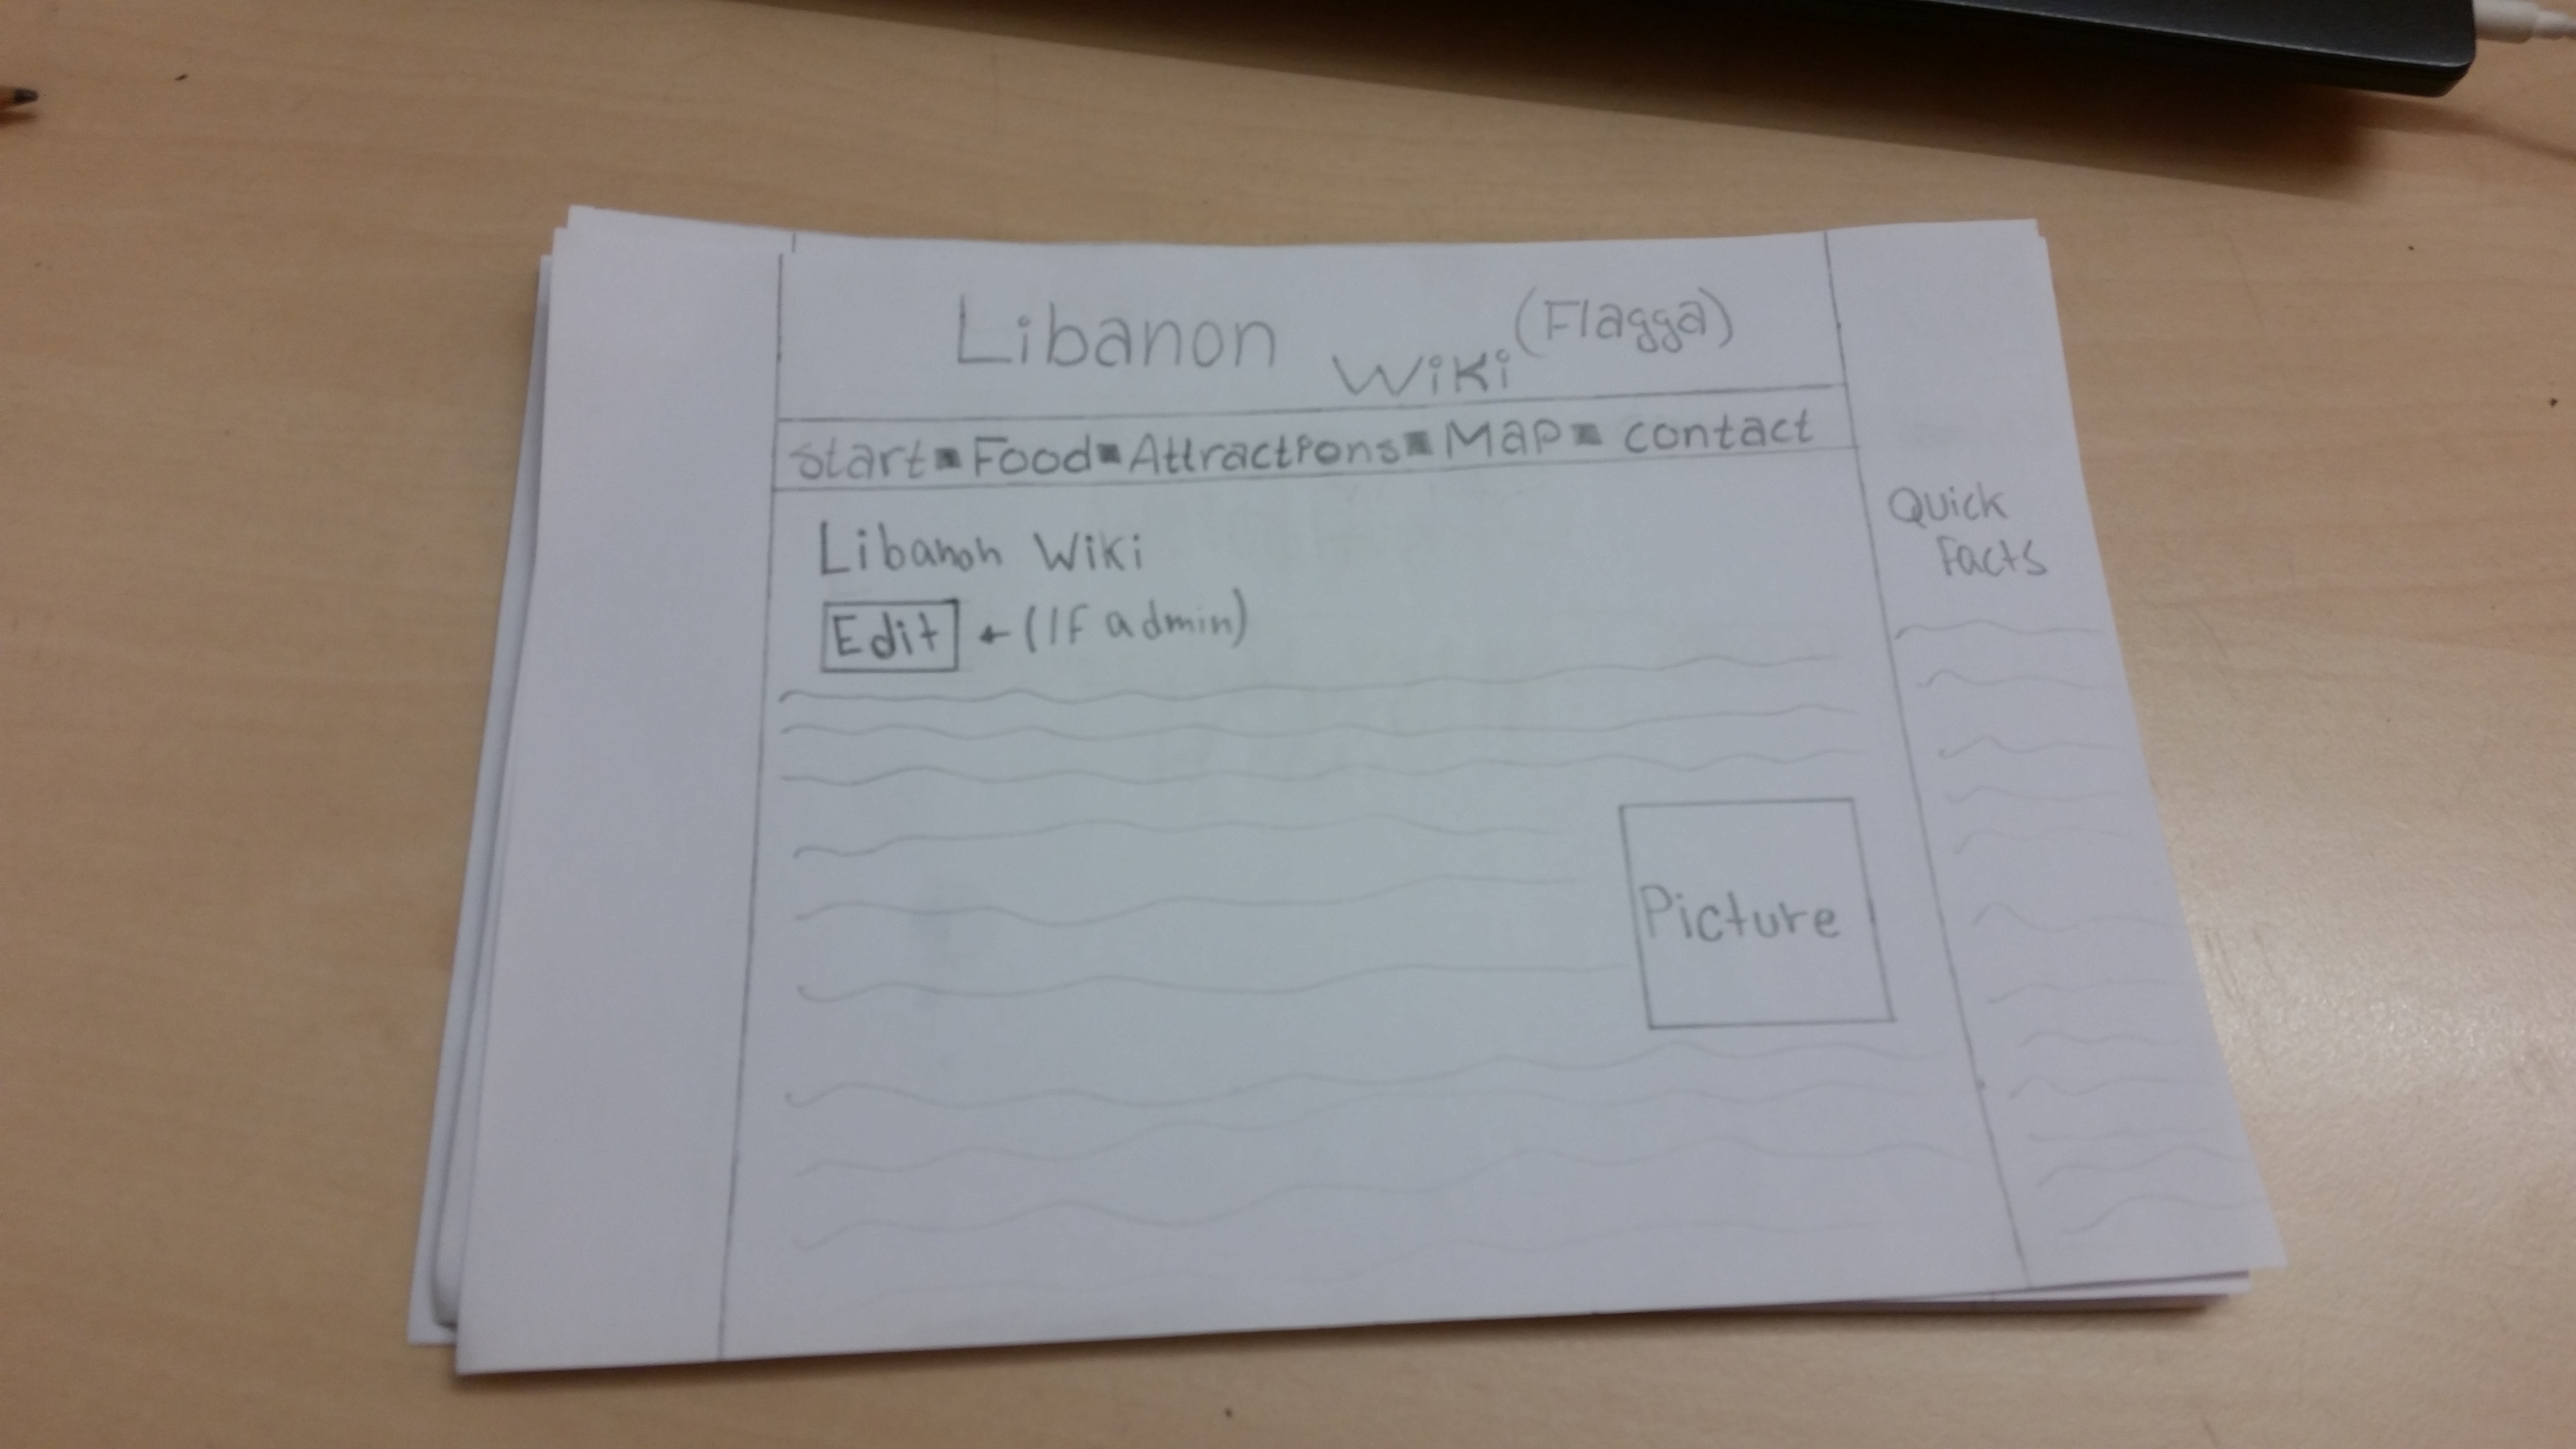 Libanon Wiki (Flagga)
Start▪Food▪Attractions▪Map▪contact
Libanon Wiki
Edit ← (If admin)
Picture
Quick
Facts